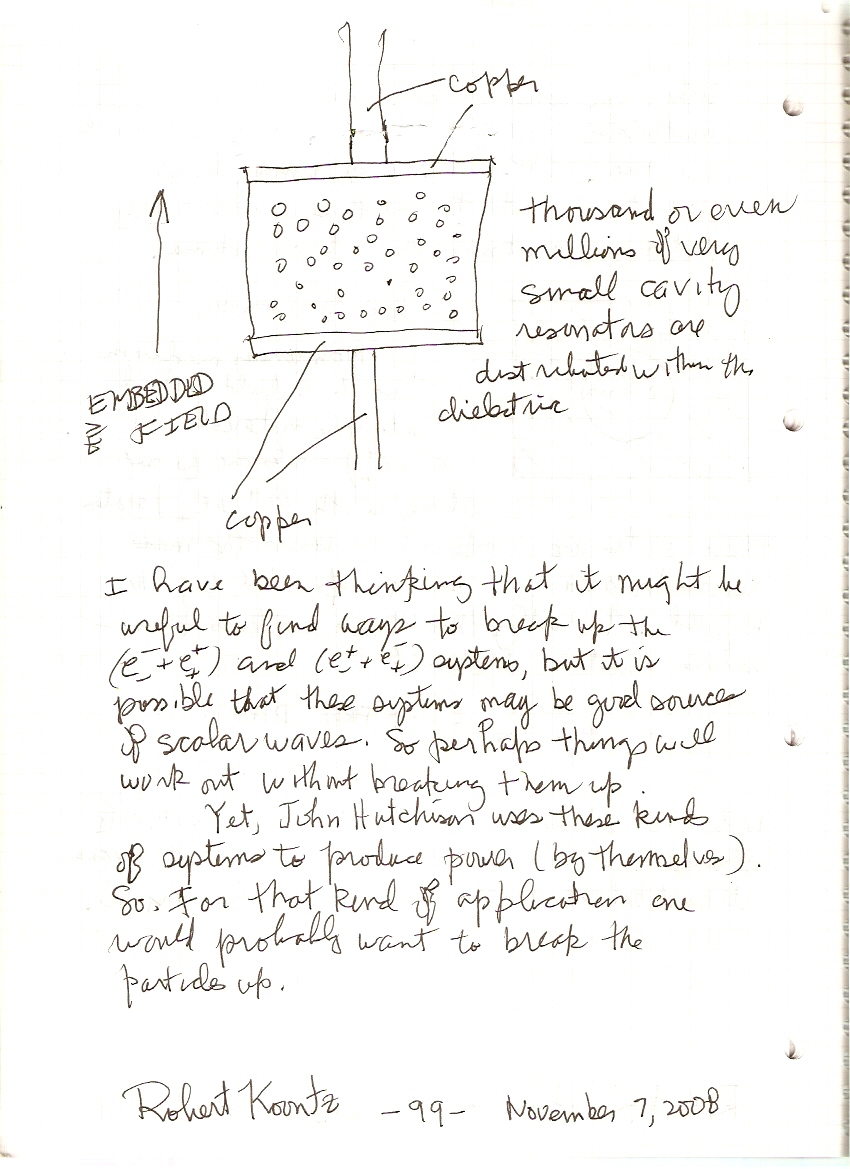 copper
thousand or even
millions of very
small cavity
resonators are
distributed within the
dielectric
EMBEDDED
E FIELD
copper
I have been thinking that it might be
useful to find ways to break up the
(e⁻₋ + e⁺₊) and (e⁺₋ + e⁻₊) systems, but it is
possible that these systems may be good sources
of scalar waves. So perhaps things will
work out without breaking them up.
Yet, John Hutchison uses these kinds
of systems to produce power (by themselves).
So. For that kind of application one
would probably want to break the
particles up.
Robert Koontz -99- November 7, 2008